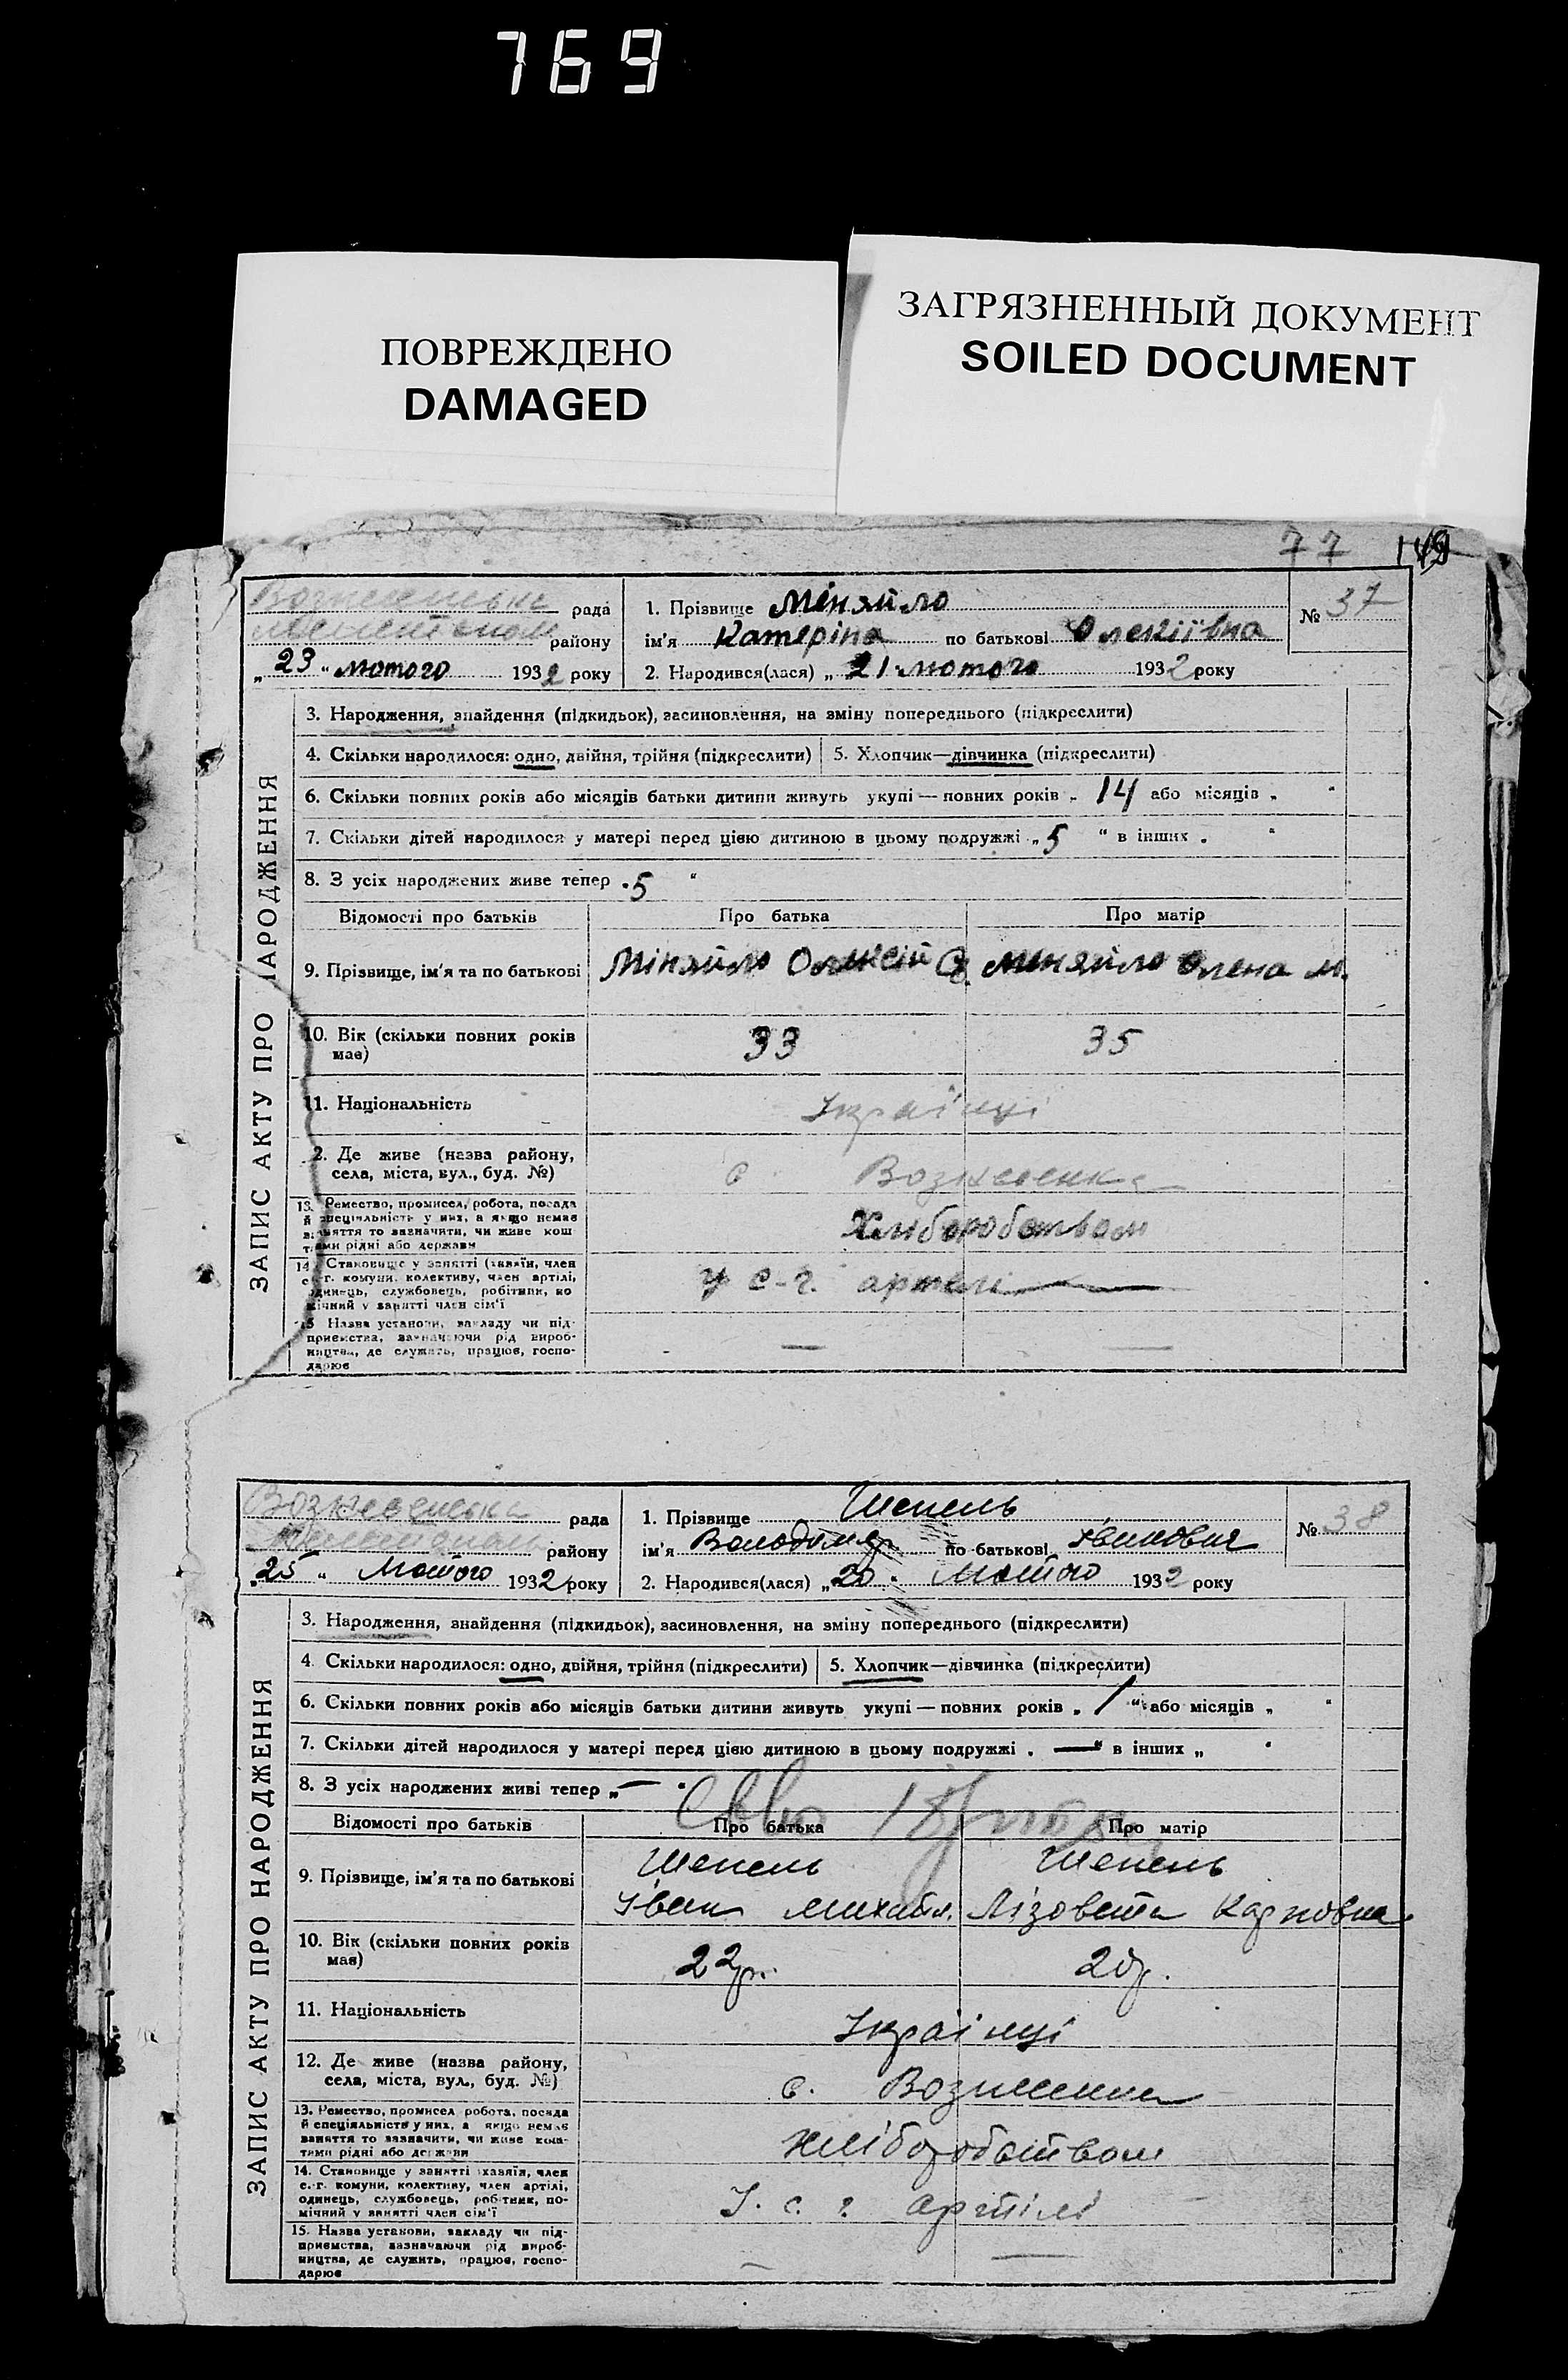 769
ПОВРЕЖДЕНО
DAMAGED
ЗАГРЯЗНЕННЫЙ ДОКУМЕНТ
SOILED DOCUMENT
77
рада
району
„23" лютого 1932 року
1. Прізвище Міняйло
ім'я Катеріна по батькові Олекіївна
2. Народився(лася) „21 лютого 1932 року
№ 37
ЗАПИС АКТУ ПРО НАРОДЖЕННЯ
3. Народження, знайдення (підкидьок), засиновлення, на зміну попереднього (підкреслити)
4. Скільки народилося: одно, двійня, трійня (підкреслити) 5. Хлопчик—дівчинка (підкреслити)
6. Скільки повних років або місяців батьки дитини живуть укупі — повних років „ 14 або місяців „ "
7. Скільки дітей народилося у матері перед цією дитиною в цьому подружжі „5 " в інших „ "
8. З усіх народжених живе тепер „5 "
Відомості про батьків Про батька Про матір
9. Прізвище, ім'я та по батькові Міняйло Олексій Міняйло Олена М.
10. Вік (скільки повних років має) 33 35
11. Національність Українці
12. Де живе (назва району,
села, міста, вул., буд. №) с Вознесенка
13. Ремество, промисел, робота, посада
й спеціяльність у них, а якщо немає
заняття то зазначити, чи живе кош
тами рідні або держави
Хліборобством
14. Становище у занятті (хазяїн, член
с.-г. комуни, колективу, член артілі,
одинець, службовець, робітник, по
мічний у занятті член сім'ї
У с-г. артелі
15. Назва установи, закладу чи під-
приємства, зазначаючи рід вироб-
ництва, де служить, працює, госпо-
дарює
— —
Вознесенська рада
району
„25" Лютого 1932 року
1. Прізвище Шепель
ім'я Володимир по батькові Іванович
2. Народився(лася) „20" Лютого 1932 року
№ 38
ЗАПИС АКТУ ПРО НАРОДЖЕННЯ
3. Народження, знайдення (підкидьок), засиновлення, на зміну попереднього (підкреслити)
4. Скільки народилося: одно, двійня, трійня (підкреслити) 5. Хлопчик—дівчинка (підкреслити)
6. Скільки повних років або місяців батьки дитини живуть укупі — повних років „ 1 " або місяців „ "
7. Скільки дітей народилося у матері перед цією дитиною в цьому подружжі „ — " в інших „ "
8. З усіх народжених живі тепер „ — "
Відомості про батьків Про батька Про матір
9. Прізвище, ім'я та по батькові
Шепель Шепель
Іван Михайл. Лізовета Карповна
10. Вік (скільки повних років має) 22р. 20р.
11. Національність Українці
12. Де живе (назва району,
села, міста, вул., буд. №) с. Вознесенка
13. Ремество, промисел робота, посада
й спеціяльність у них, а якщо немає
заняття то зазначити, чи живе кош-
тами рідні або держави
хліборобством
14. Становище у занятті хазяїн, член
с.-г. комуни, колективу, член артілі,
одинець, службовець, робітник, по-
мічний у занятті член сім'ї
У. с. г. артілі
15. Назва установи, закладу чи під-
приємства, зазначаючи рід вироб-
ництва, де служить, працює, госпо-
дарює
— —